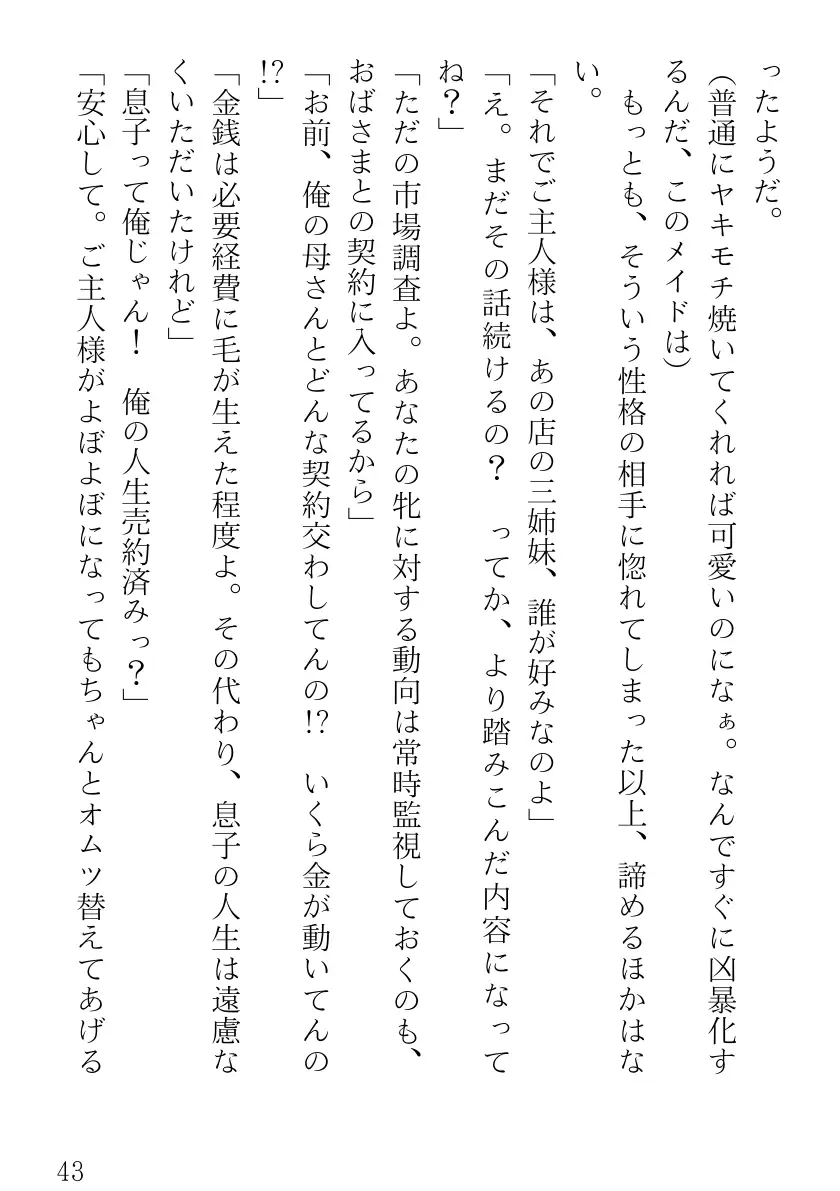 ったようだ。
（普通にヤキモチ焼いてくれれば可愛いのになぁ。なんですぐに凶暴化す
るんだ、このメイドは）
　もっとも、そういう性格の相手に惚れてしまった以上、諦めるほかはな
い。
「それでご主人様は、あの店の三姉妹、誰が好みなのよ」
「え。まだその話続けるの？　ってか、より踏みこんだ内容になって
ね？」
「ただの市場調査よ。あなたの牝に対する動向は常時監視しておくのも、
おばさまとの契約に入ってるから」
「お前、俺の母さんとどんな契約交わしてんの!?　いくら金が動いてんの
!?」
「金銭は必要経費に毛が生えた程度よ。その代わり、息子の人生は遠慮な
くいただいたけれど」
「息子って俺じゃん！　俺の人生売約済みっ？」
「安心して。ご主人様がよぼよぼになってもちゃんとオムツ替えてあげる
43